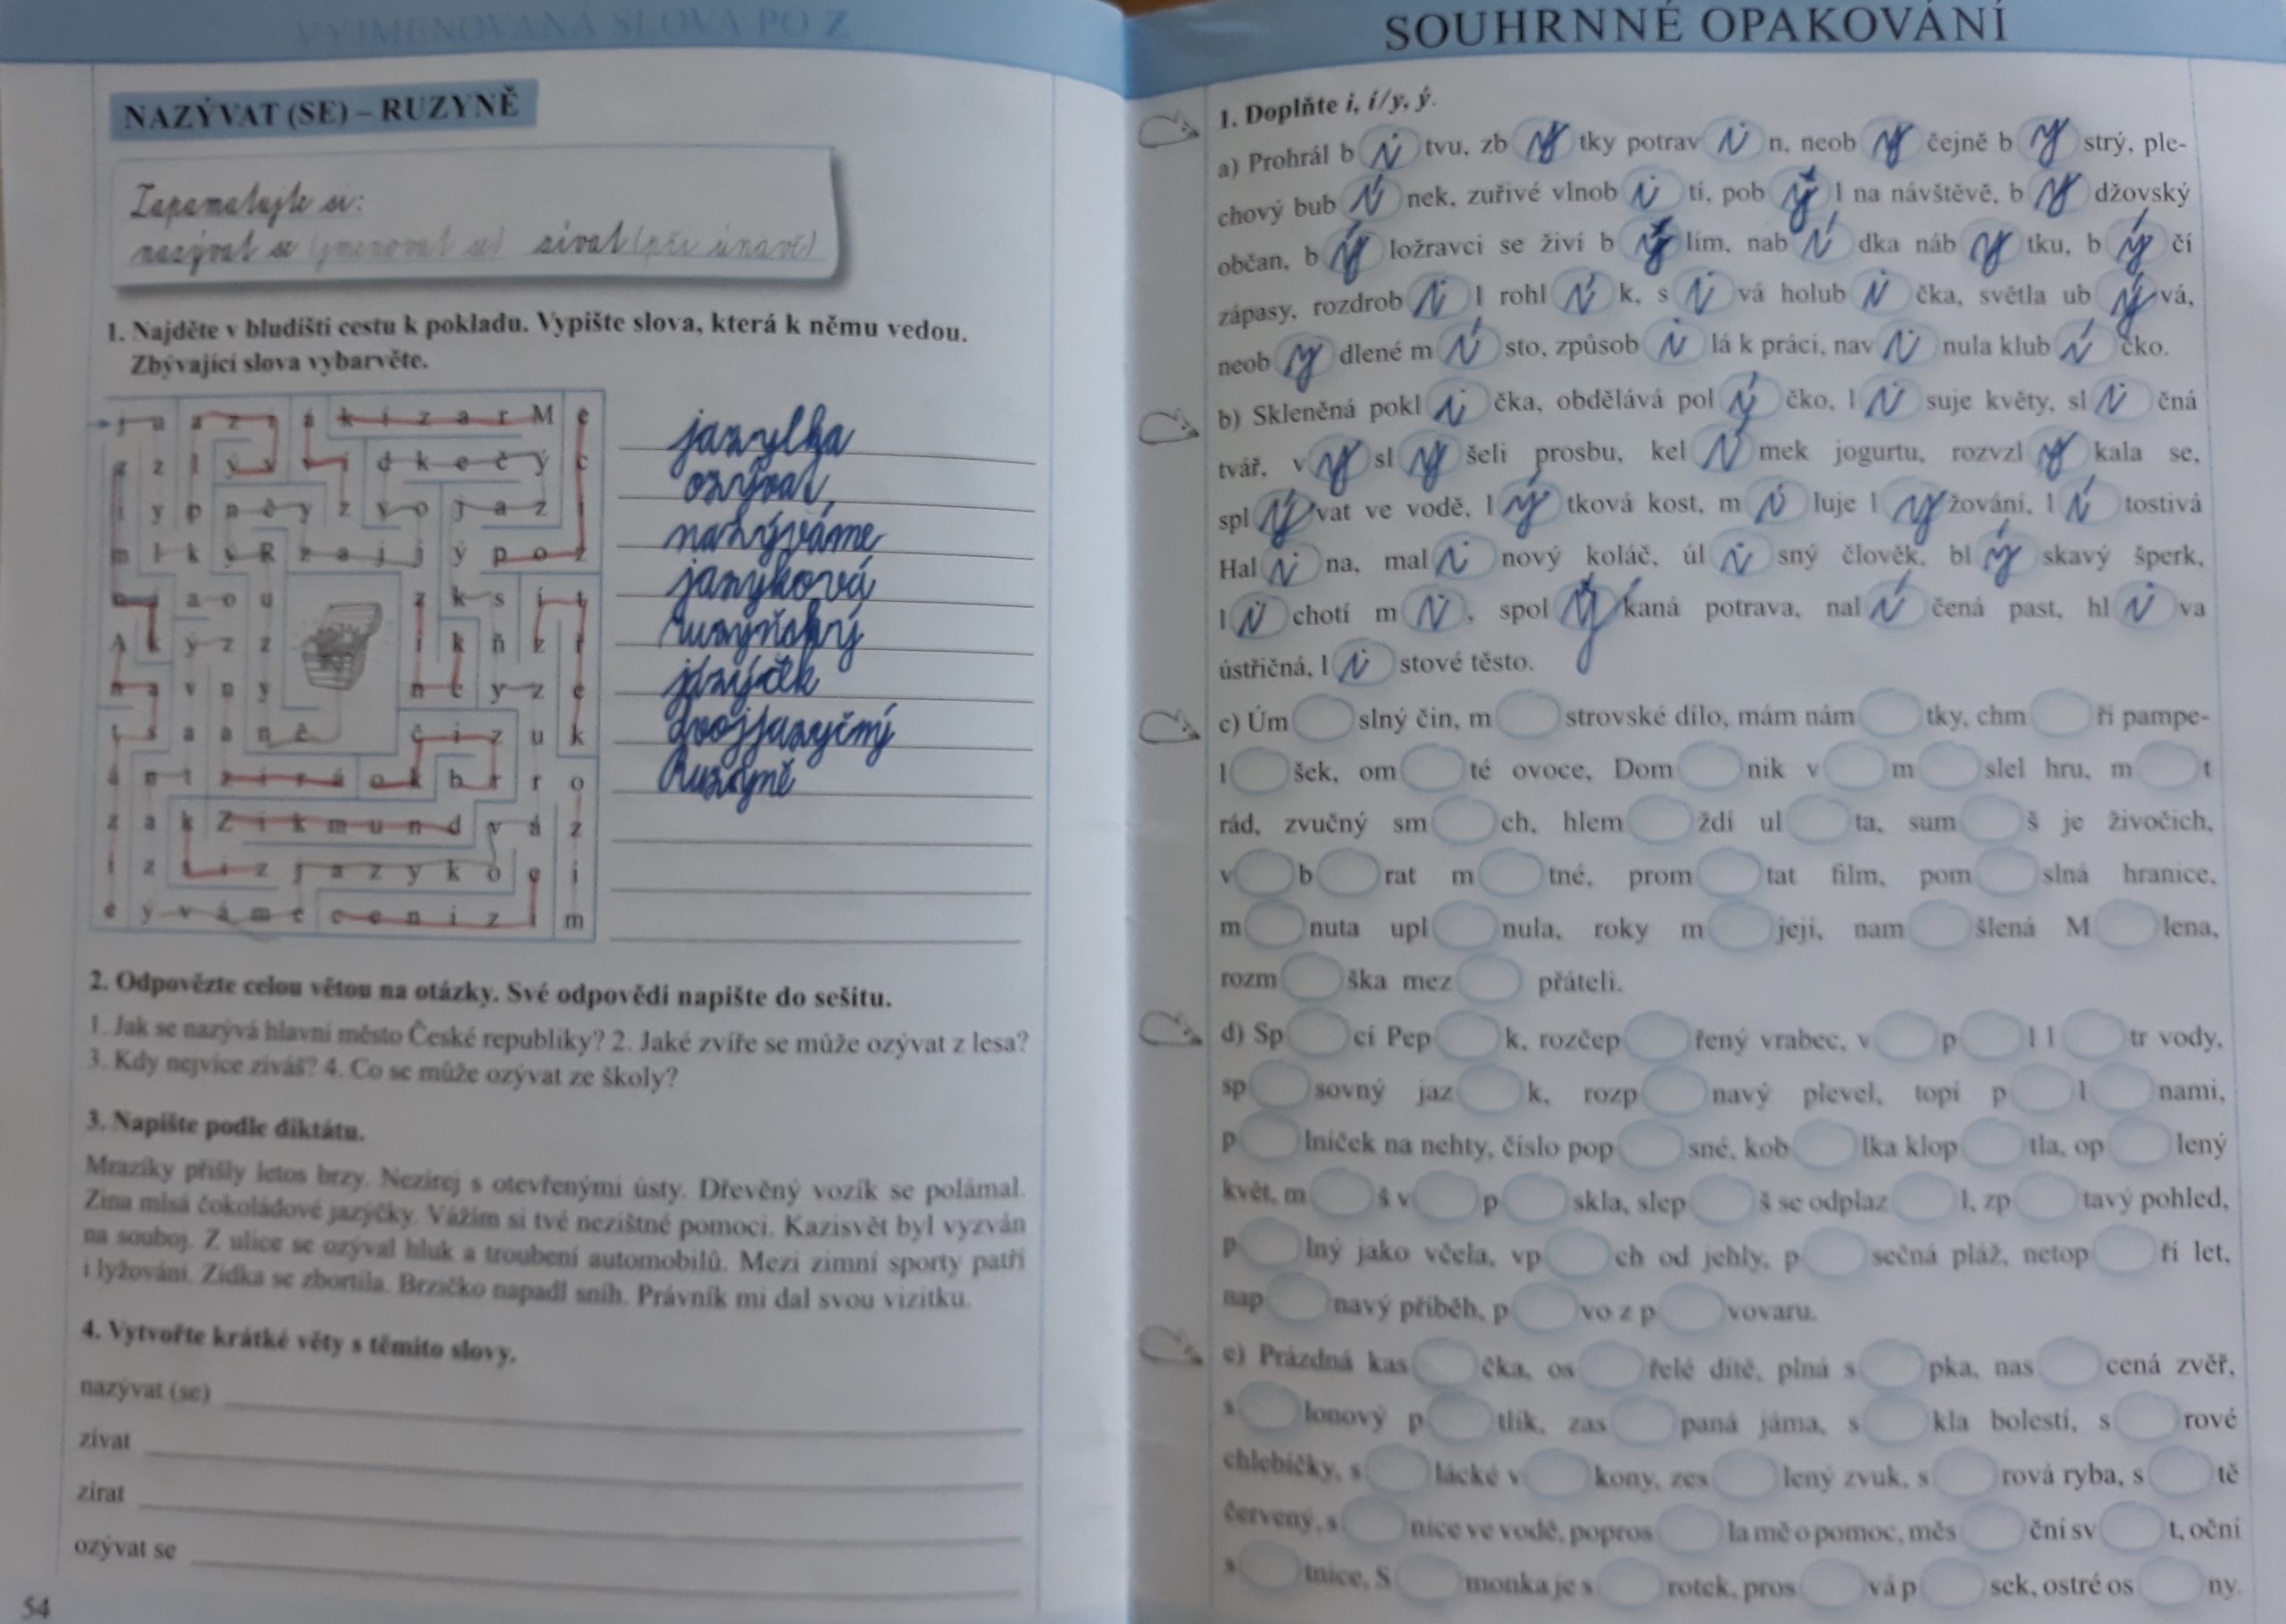 VYJMENOVANÁ SLOVA PO Z
NAZÝVAT (SE) – RUZYNĚ
Zapamatujte si:
nazývat se (jmenovat se) zívat (při únavě)
1. Najděte v bludišti cestu k pokladu. Vypište slova, která k němu vedou.
Zbývající slova vybarvěte.
jazylka
ozývat,
nazýváme
jazyková
ruzyňský
jazýček
dvojjazyčný
Ruzyně
2. Odpovězte celou větou na otázky. Své odpovědi napište do sešitu.
1. Jak se nazývá hlavní město České republiky? 2. Jaké zvíře se může ozývat z lesa?
3. Kdy nejvíce zíváš? 4. Co se může ozývat ze školy?
3. Napište podle diktátu.
Mrazíky přišly letos brzy. Nezírej s otevřenými ústy. Dřevěný vozík se polámal.
Zina mlsá čokoládové jazýčky. Vážím si tvé nezištné pomoci. Kazisvět byl vyzván
na souboj. Z ulice se ozýval hluk a troubení automobilů. Mezi zimní sporty patří
i lyžování. Zídka se zbortila. Brzičko napadl sníh. Právník mi dal svou vizitku.
4. Vytvořte krátké věty s těmito slovy.
nazývat (se)
zívat
zírat
ozývat se
54
SOUHRNNÉ OPAKOVÁNÍ
1. Doplňte i, í/y, ý.
a) Prohrál b i tvu, zb y tky potrav i n, neob y čejně b y strý, ple-
chový bub í nek, zuřivé vlnob i tí, pob ý l na návštěvě, b y džovský
občan, b ý ložravci se živí b ý lím, nab í dka náb y tku, b ý čí
zápasy, rozdrob i l rohl í k, s i vá holub i čka, světla ub ý vá,
neob y dlené m í sto, způsob i lá k práci, nav i nula klub í čko.
b) Skleněná pokl i čka, obdělává pol í čko, l i suje květy, sl i čná
tvář, v y sl y šeli prosbu, kel í mek jogurtu, rozvzl y kala se,
spl ý vat ve vodě, l ý tková kost, m i luje l y žování, l í tostivá
Hal i na, mal i nový koláč, úl i sný člověk, bl ý skavý šperk,
l i chotí m i , spol y kaná potrava, nal í čená past, hl i va
ústřičná, l i stové těsto.
c) Úm slný čin, m strovské dílo, mám nám tky, chm ří pampe-
l šek, om té ovoce, Dom nik v m slel hru, m t
rád, zvučný sm ch, hlem ždí ul ta, sum š je živočich,
v b rat m tné, prom tat film, pom slná hranice,
m nuta upl nula, roky m její, nam šlená M lena,
rozm ška mez přáteli.
d) Sp cí Pep k, rozčep řený vrabec, v p l l tr vody,
sp sovný jaz k, rozp navý plevel, topí p l nami,
p lníček na nehty, číslo pop sné, kob lka klop tla, op lený
květ, m š v p skla, slep š se odplaz l, zp tavý pohled,
p lný jako včela, vp ch od jehly, p sečná pláž, netop ří let,
nap navý příběh, p vo z p vovaru.
e) Prázdná kas čka, os řelé dítě, plná s pka, nas cená zvěř,
s lonový p tlík, zas paná jáma, s kla bolestí, s rové
chlebíčky, s lácké v kony, zes lený zvuk, s rová ryba, s tě
červený, s nice ve vodě, popros la mě o pomoc, měs ční sv t, oční
s tnice, S monka je s rotek, pros vá p sek, ostré os ny.